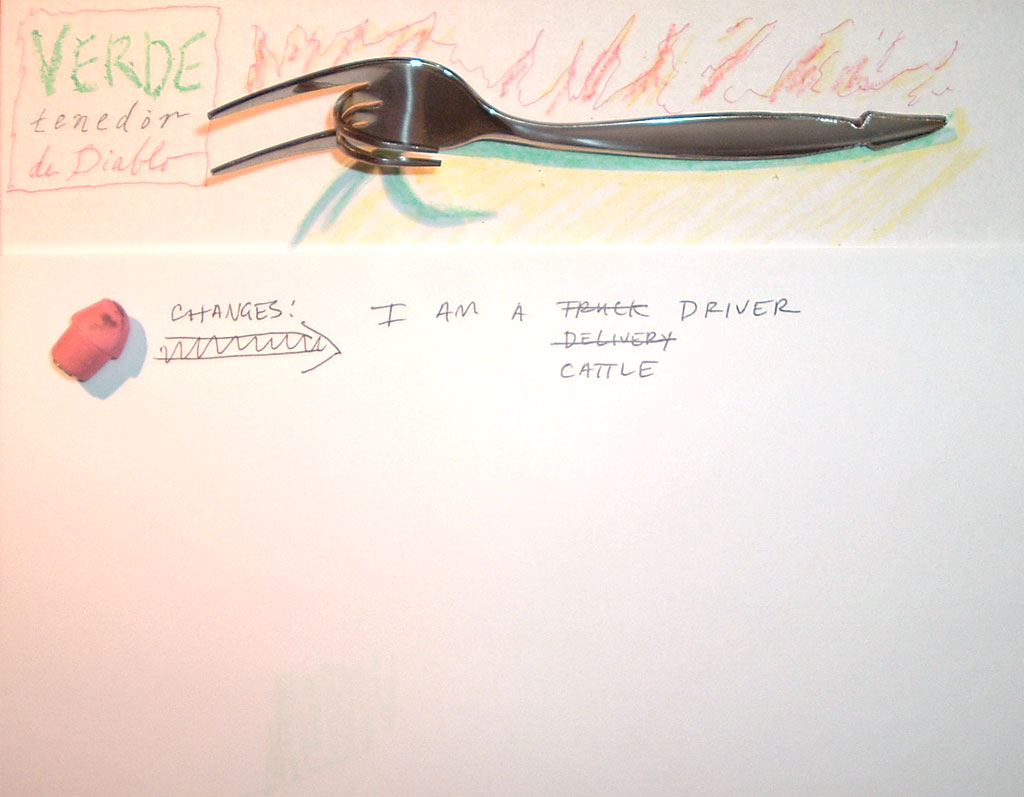 VERDE
tenedòr
de Diablo
CHANGES: I AM A TRUCK DRIVER
DELIVERY
CATTLE